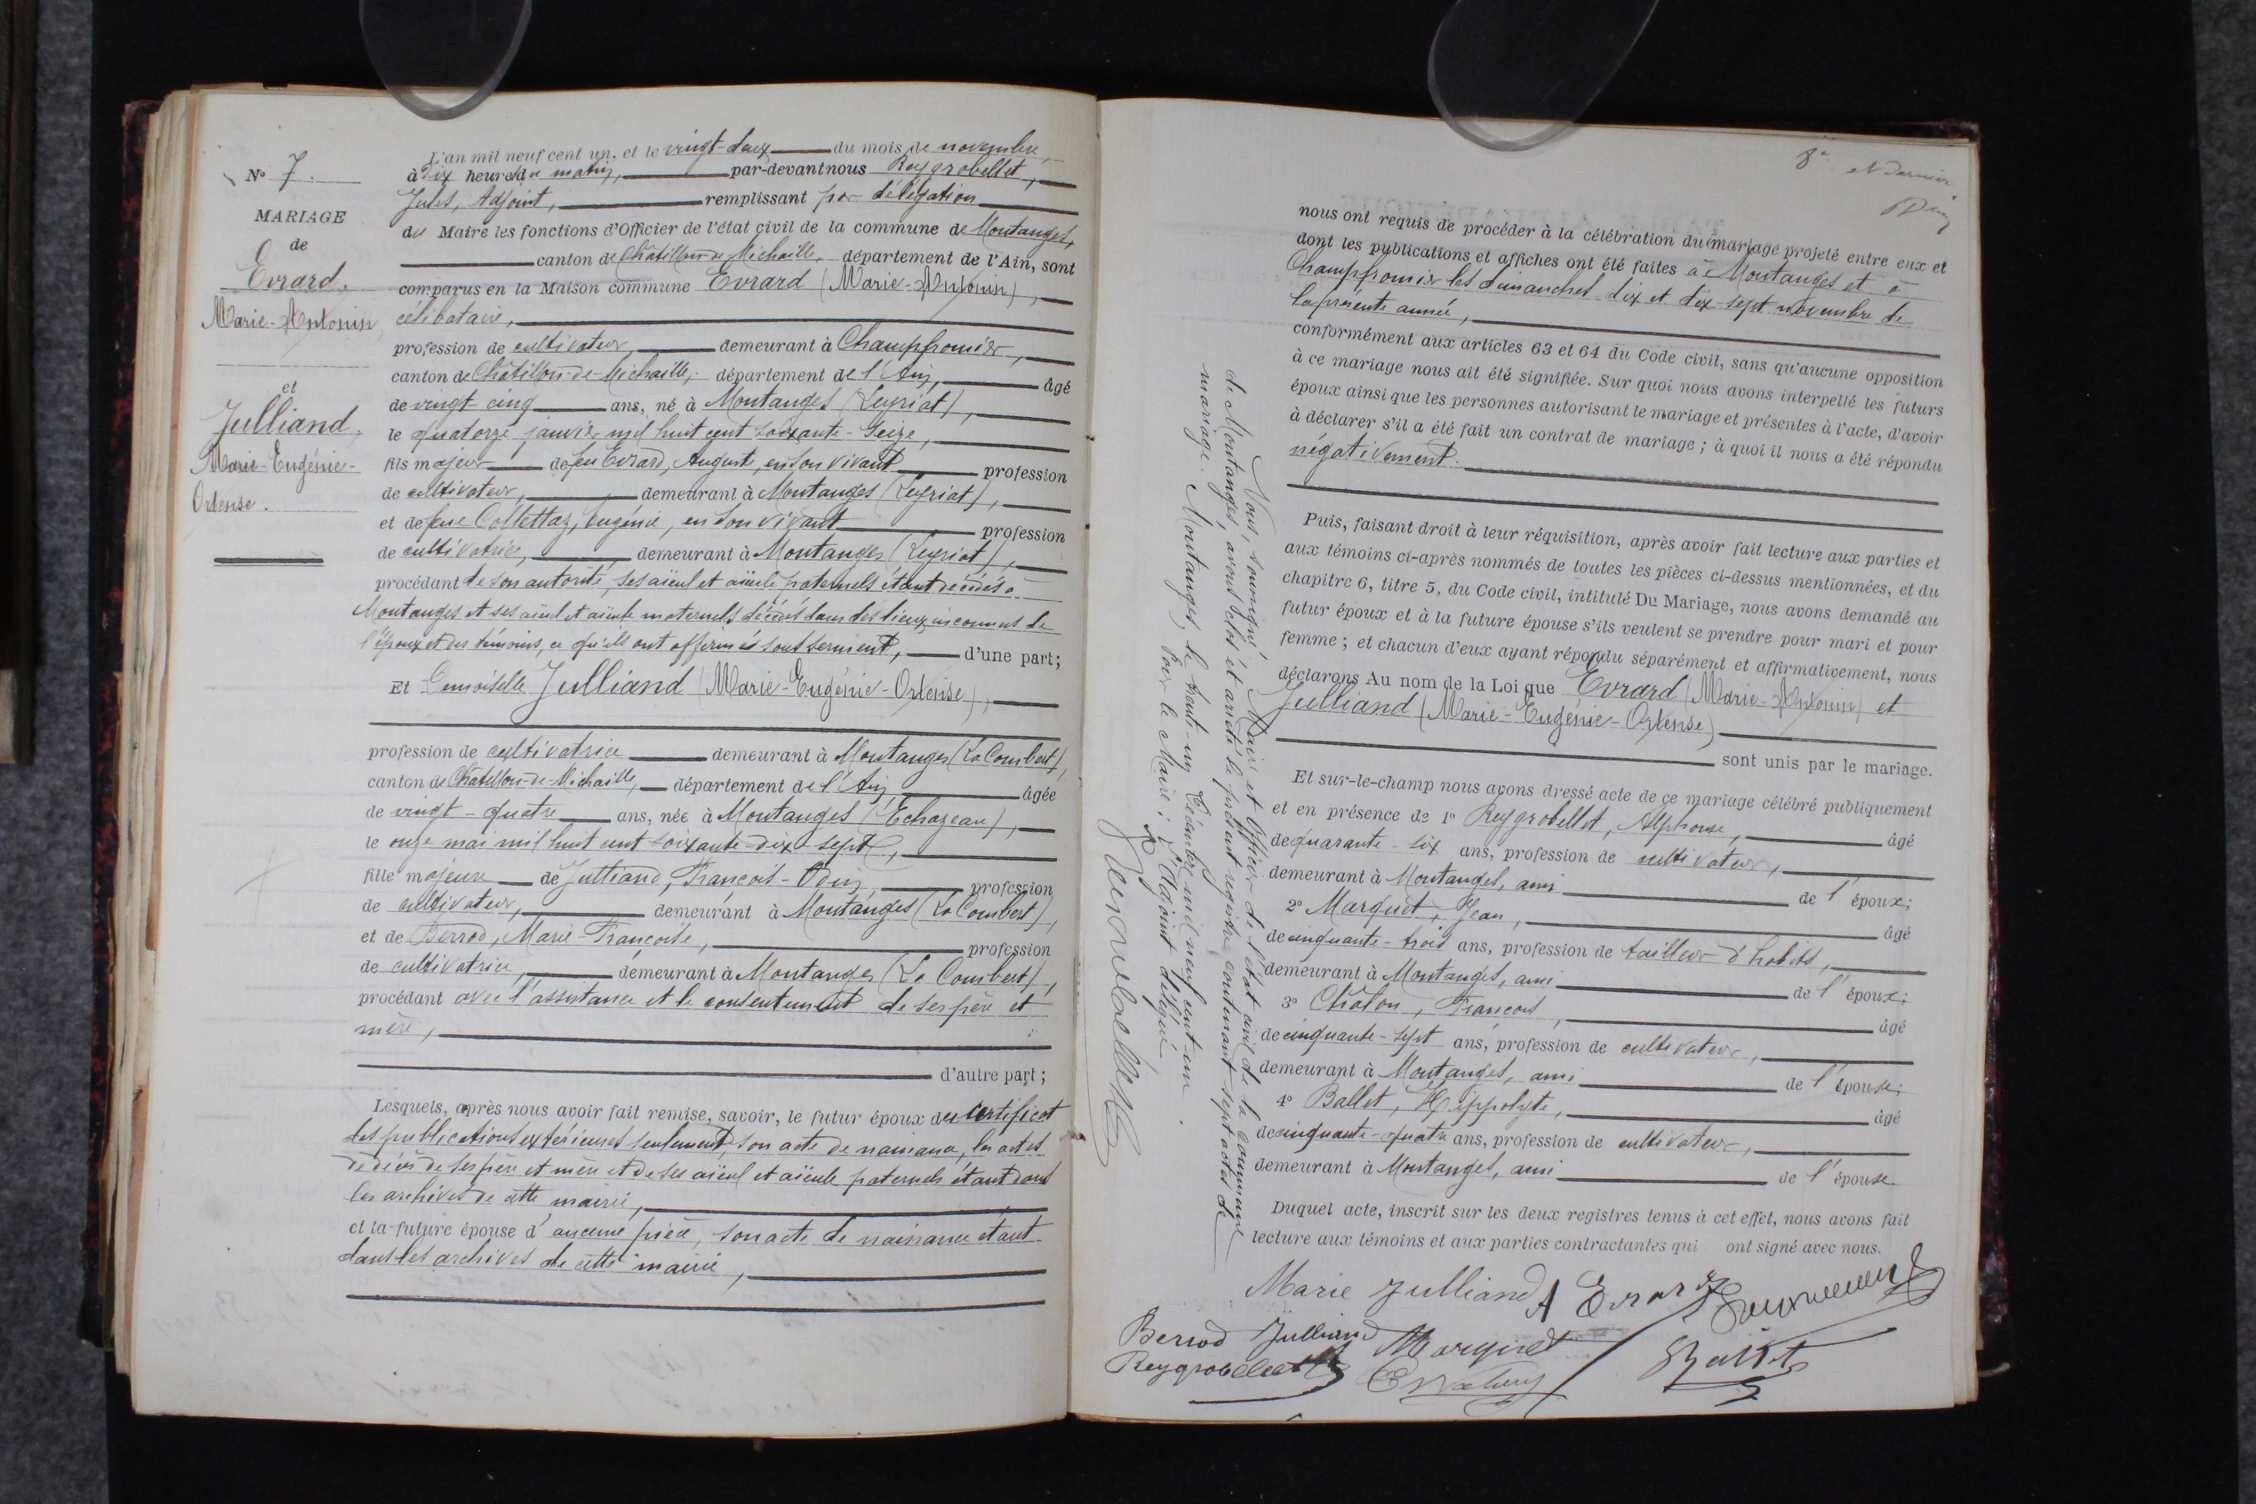 N° 7.
MARIAGE
de
Evrard,
Marie-Antonin,
et
Julliand,
Marie-Eugénie-
Ortense.
L'an mil neuf cent un, et le vingt-deux du mois de novembre,
à dix heures du matin, par-devant nous Reygrobellet,
Jules, Adjoint, remplissant par délégation
du Maire les fonctions d'Officier de l'état civil de la commune de Montanges,
canton de Châtillon-de-Michaille, département de l'Ain, sont
comparus en la Maison commune Evrard (Marie-Antonin),
célibataire,
profession de cultivateur, demeurant à Champfromier,
canton de Châtillon-de-Michaille, département de l'Ain, âgé
de vingt-cinq ans, né à Montanges (Leyriat),
le quatorze janvier mil huit cent soixante-seize,
fils majeur de feu Evrard, Auguste, en son vivant profession
de cultivateur, demeurant à Montanges (Leyriat),
et de feue Collettaz, Eugénie, en son vivant profession
de cultivatrice, demeurant à Montanges (Leyriat),
procédant de son autorité, ses aïeul et aïeule paternels étant décédés à
Montanges et ses aïeul et aïeule maternels décédés dans des lieux inconnus de
l'époux et des témoins, ce qu'ils ont affirmés sous serment, d'une part;
Et Demoiselle Julliand (Marie-Eugénie-Ortense),
profession de cultivatrice demeurant à Montanges (La Combert),
canton de Châtillon-de-Michaille, département de l'Ain âgée
de vingt-quatre ans, née à Montanges (Echazeau),
le onze mai mil huit cent soixante-dix-sept,
fille majeure de Julliand, François-Odin, profession
de cultivateur, demeurant à Montanges (La Combert),
et de Berrod, Marie-Françoise, profession
de cultivatrice, demeurant à Montanges (La Combert),
procédant avec l'assistance et le consentement de ses père et
mère,
d'autre part;
Lesquels, après nous avoir fait remise, savoir, le futur époux du certificat
des publications extérieures seulement, son acte de naissance, les actes
de décès de ses père et mère et de ses aïeul et aïeule paternels étant dans
les archives de cette mairie,
et la future épouse d'aucune pièce, son acte de naissance étant
dans les archives de cette mairie,
8e et dernier
nous ont requis de procéder à la célébration du mariage projeté entre eux et
dont les publications et affiches ont été faites à Montanges et à
Champfromier les dimanches dix et dix-sept novembre de
la présente année,
conformément aux articles 63 et 64 du Code civil, sans qu'aucune opposition
à ce mariage nous ait été signifiée. Sur quoi nous avons interpellé les futurs
époux ainsi que les personnes autorisant le mariage et présentes à l'acte, d'avoir
à déclarer s'il a été fait un contrat de mariage; à quoi il nous a été répondu
négativement.
Puis, faisant droit à leur réquisition, après avoir fait lecture aux parties et
aux témoins ci-après nommés de toutes les pièces ci-dessus mentionnées, et du
chapitre 6, titre 5, du Code civil, intitulé Du Mariage, nous avons demandé au
futur époux et à la future épouse s'ils veulent se prendre pour mari et pour
femme; et chacun d'eux ayant répondu séparément et affirmativement, nous
déclarons Au nom de la Loi que Evrard (Marie-Antonin) et
Julliand (Marie-Eugénie-Ortense)
sont unis par le mariage.
Et sur-le-champ nous avons dressé acte de ce mariage célébré publiquement
et en présence de 1° Reygrobellet, Alphonse, âgé
de quarante-six ans, profession de cultivateur,
demeurant à Montanges, ami de l'époux;
2° Marquet, Jean, âgé
de cinquante-trois ans, profession de tailleur d'habits,
demeurant à Montanges, ami de l'époux;
3° Châlon, François, âgé
de cinquante-sept ans, profession de cultivateur,
demeurant à Montanges, ami de l'épouse;
4° Ballet, Hippolyte, âgé
de cinquante-quatre ans, profession de cultivateur,
demeurant à Montanges, ami de l'épouse.
Duquel acte, inscrit sur les deux registres tenus à cet effet, nous avons fait
lecture aux témoins et aux parties contractantes qui ont signé avec nous.
Marie Julliand A Evrard
Berrod Julliand Marquet Ballet
Reygrobellet
Nous, soussigné, Maire et Officier de l'état civil de la commune
de Montanges, avons clos et arrêté le présent registre contenant sept actes de
mariage. Montanges, le trente-un Décembre mil neuf cent-un.
Pour le Maire; l'Adjoint délégué.
Reygrobellet